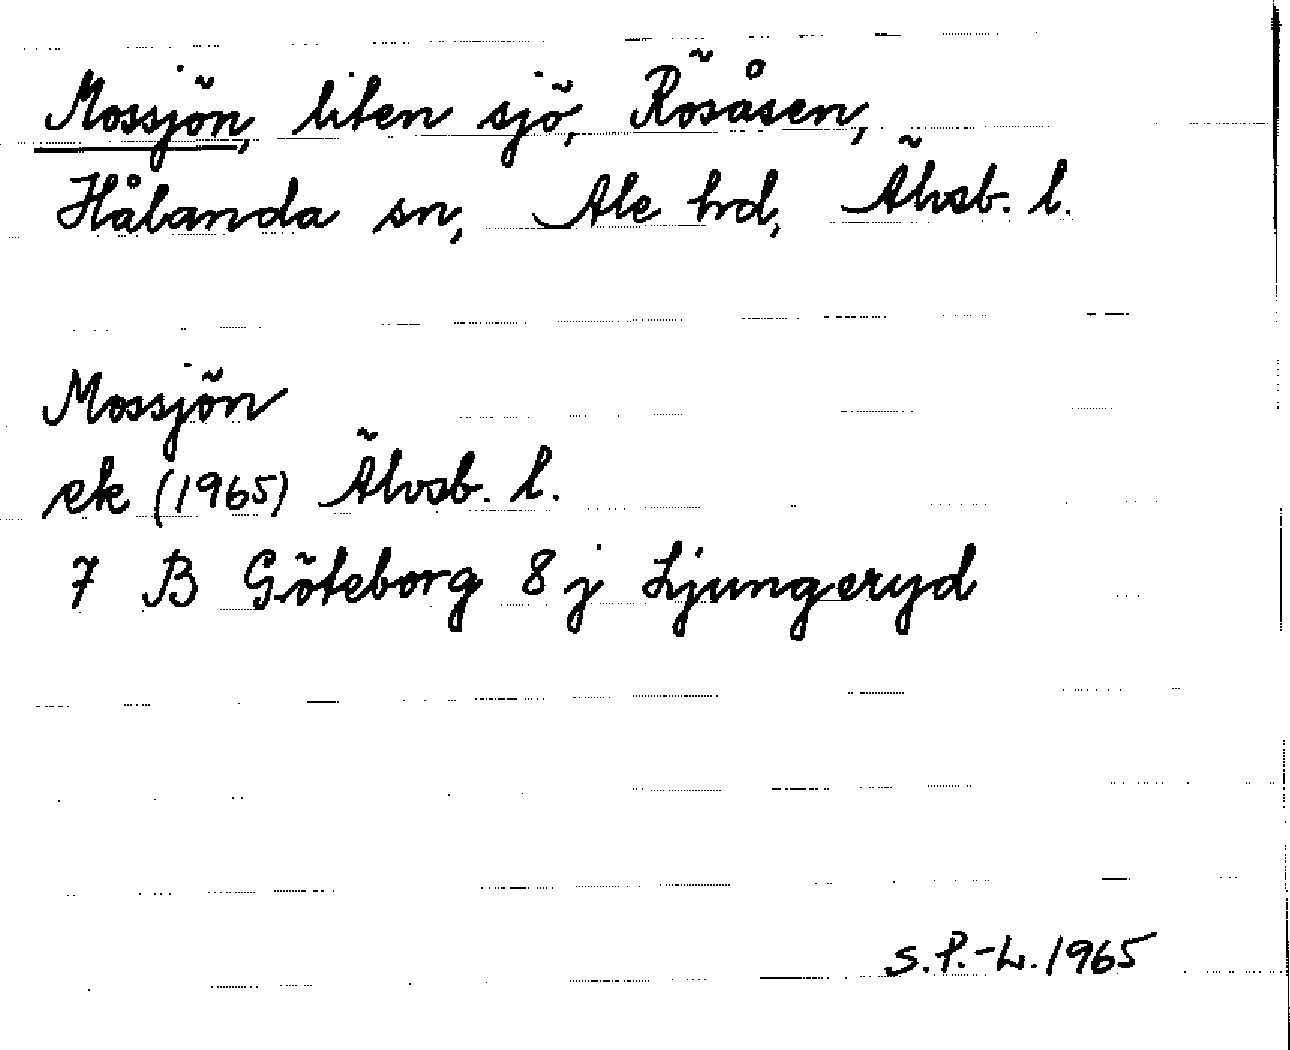 Mossjön, liten sjö, Rösåsen,
Hålanda sn, Ale hd, Älvsb. l.
Mossjön
ek (1965) Älvsb. l.
7 B Göteborg 8 j Ljungeryd
S.P.-L. 1965